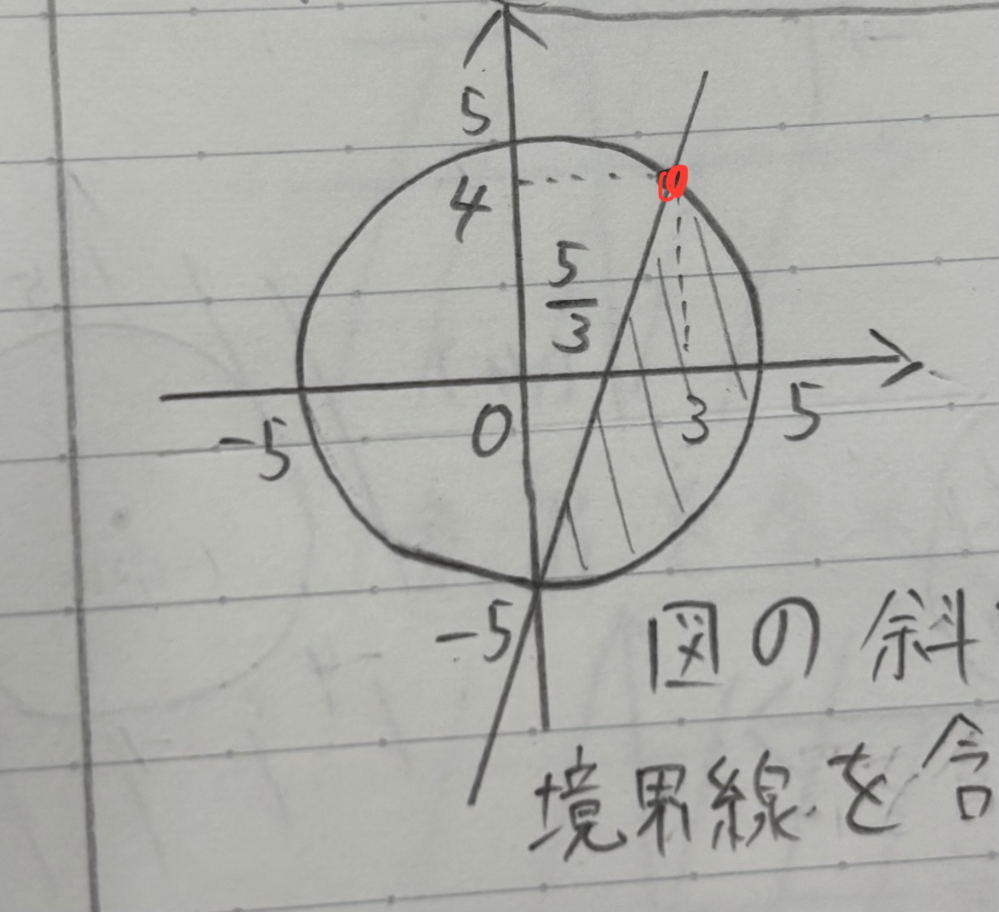 5
4
5/3
-5
0
3
5
-5
図の斜
境界線を含